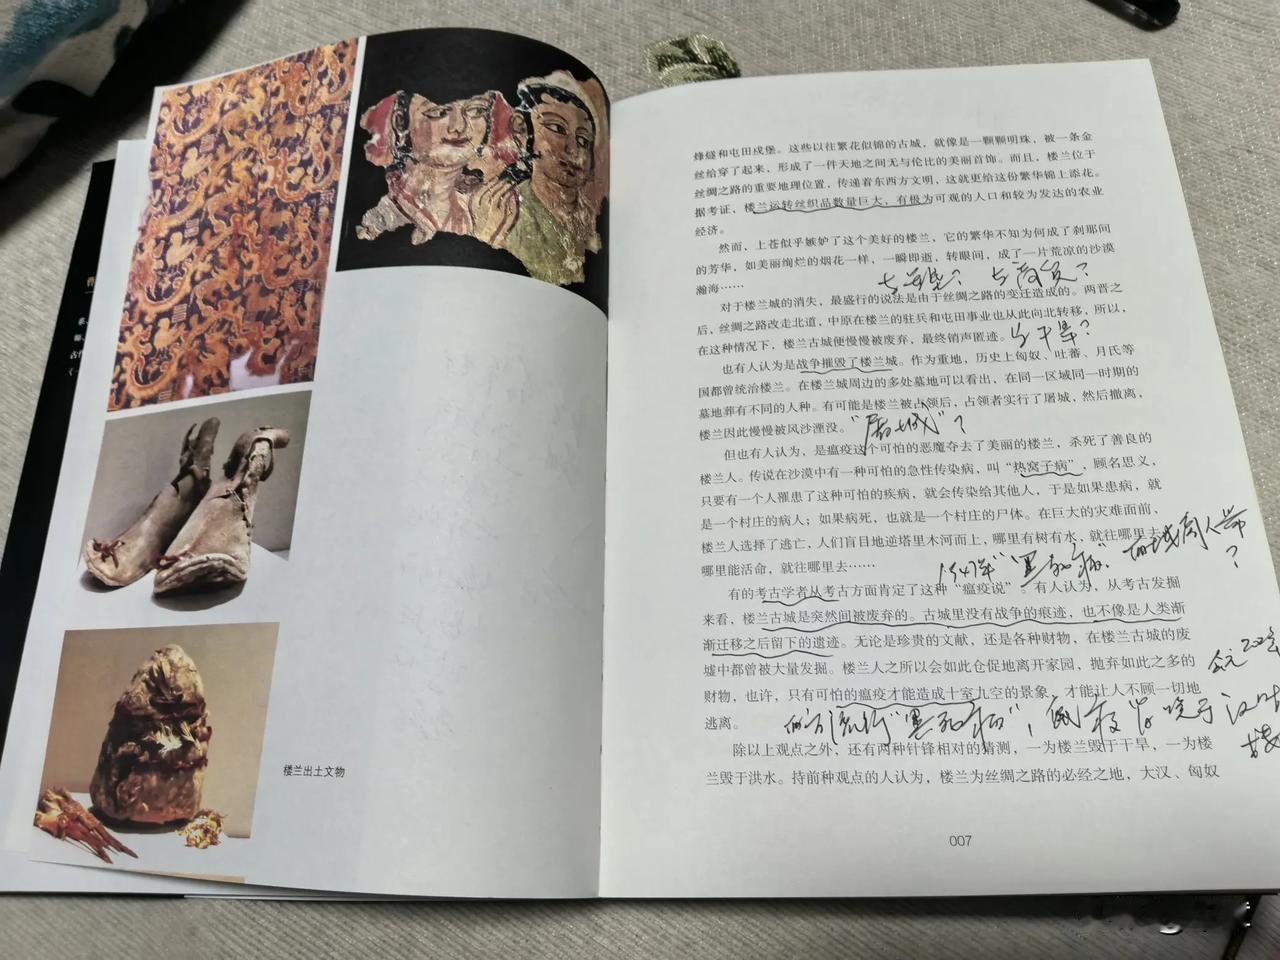 楼兰出土文物
烽燧和屯田戍堡。这些以往繁花似锦的古城，就像是一颗颗明珠，被一条金
丝给穿了起来，形成了一件天地之间无与伦比的美丽首饰。而且，楼兰位于
丝绸之路的重要地理位置，传递着东西方文明，这就更给这份繁华锦上添花。
据考证，楼兰运转丝织品数量巨大，有极为可观的人口和较为发达的农业
经济。
然而，上苍似乎嫉妒了这个美好的楼兰，它的繁华不知为何成了刹那间
的芳华，如美丽绚烂的烟花一样，一瞬即逝，转眼间，成了一片荒凉的沙漠
瀚海……
对于楼兰城的消失，最盛行的说法是由于丝绸之路的变迁造成的。两晋之
后，丝绸之路改走北道，中原在楼兰的驻兵和屯田事业也从此向北转移，所以，
在这种情况下，楼兰古城便慢慢被废弃，最终销声匿迹。
与干旱？
也有人认为是战争摧毁了楼兰城。作为重地，历史上匈奴、吐蕃、月氏等
国都曾统治楼兰。在楼兰城周边的多处墓地可以看出，在同一区域同一时期的
墓地葬有不同的人种。有可能是楼兰被占领后，占领者实行了屠城，然后撤离，
楼兰因此慢慢被风沙湮没。
“屠城”？
但也有人认为，是瘟疫这个可怕的恶魔夺去了美丽的楼兰，杀死了善良的
楼兰人。传说在沙漠中有一种可怕的急性传染病，叫“热窝子病”，顾名思义，
只要有一个人罹患了这种可怕的疾病，就会传染给其他人，于是如果患病，就
是一个村庄的病人；如果病死，也就是一个村庄的尸体。在巨大的灾难面前，
楼兰人选择了逃亡，人们盲目地逆塔里木河而上，哪里有树有水，就往哪里去，
哪里能活命，就往哪里去……
1347年“黑死病”
西域商人带
？
有的考古学者从考古方面肯定了这种“瘟疫说”。有人认为，从考古发掘
来看，楼兰古城是突然间被废弃的。古城里没有战争的痕迹，也不像是人类渐
渐迁移之后留下的遗迹。无论是珍贵的文献，还是各种财物，在楼兰古城的废
墟中都曾被大量发掘。楼兰人之所以会如此仓促地离开家园，抛弃如此之多的
财物，也许，只有可怕的瘟疫才能造成十室九空的景象，才能让人不顾一切地
逃离。
“黑死病”，
除以上观点之外，还有两种针锋相对的猜测，一为楼兰毁于干旱，一为楼
兰毁于洪水。持前种观点的人认为，楼兰为丝绸之路的必经之地，大汉、匈奴
007